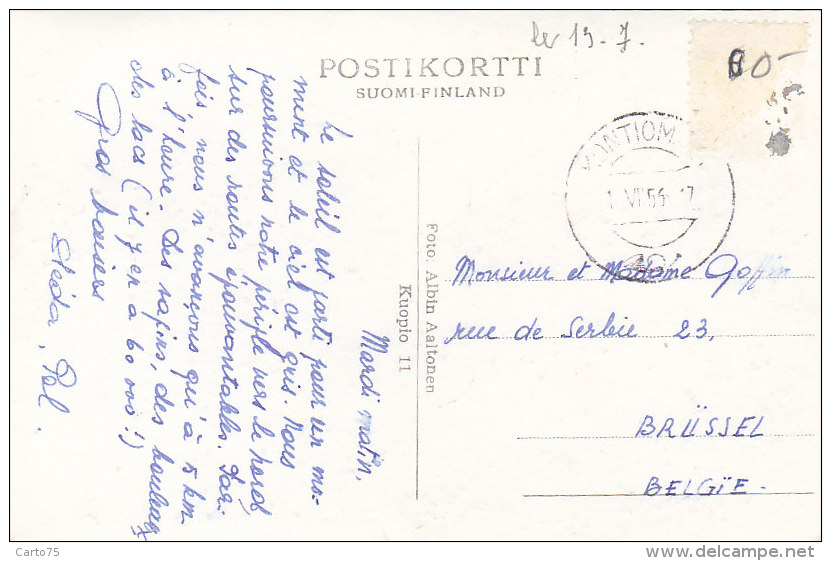 le 13-7.
POSTIKORTTI
SUOMI-FINLAND
80-
KONTIOM
1 VII 56 17
Mardi matin,
Le soleil est parti pour un mo-
ment et le ciel est gris. Nous
poursuivons notre périple vers le nord
sur des routes épouvantables. Par-
fois nous n'avançons qu'à 5 km
à l'heure. Des sapins, des bouleaux
des lacs (il y en a 60 000!)
Gros baisers
Pol.
Foto. Albin Aaltonen
Kuopio 11
Monsieur et Madame Goffin
rue de Serbie 23,
BRÜSSEL
BELGÏE-
Carto75
www.delcampe.net